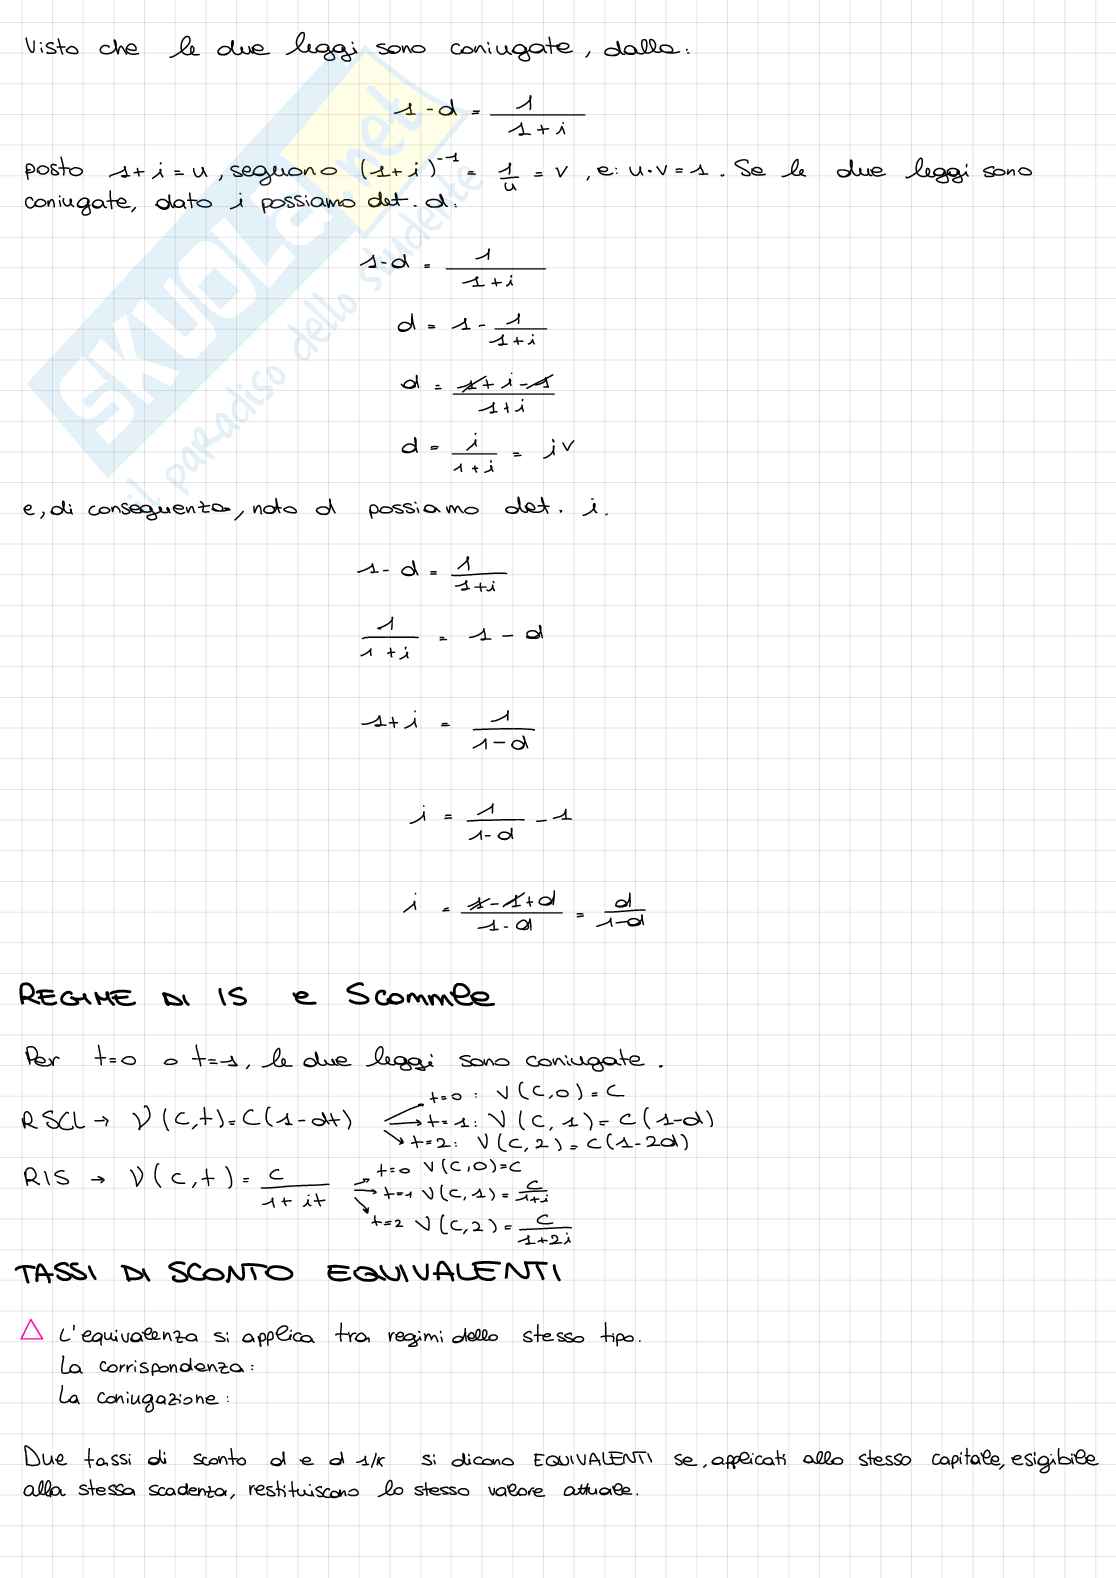 Visto che le due leggi sono coniugate, dalla:
1-d = 1/(1+i)
posto 1+i = u, seguono (1+i)^-1 = 1/u = v, e: u·v=1. Se le due leggi sono
coniugate, dato i possiamo det. d:
1-d = 1/(1+i)
d = 1 - 1/(1+i)
d = (1+i-1)/(1+i)
d = i/(1+i) = iv
e, di conseguenza, noto d possiamo det. i.
1-d = 1/(1+i)
1/(1+i) = 1-d
1+i = 1/(1-d)
i = 1/(1-d) - 1
i = (1-1+d)/(1-d) = d/(1-d)
REGIME DI IS e Scomm&le
Per t=0 o t=1, le due leggi sono coniugate.
t=0: V(C,0)=C
RSCL → V(C,t)=C(1-dt) → t=1: V(C,1)=C(1-d)
t=2: V(C,2)=C(1-2d)
t=0 V(C,0)=C
RIS → V(C,t) = C/(1+it) → t=1 V(C,1)=C/(1+i)
t=2 V(C,2)=C/(1+2i)
TASSI DI SCONTO EQUIVALENTI
L'equivalenza si applica tra regimi dello stesso tipo.
La corrispondenza:
La coniugazione:
Due tassi di sconto d e d 1/k si dicono EQUIVALENTI se, applicati allo stesso capitale, esigibile
alla stessa scadenza, restituiscono lo stesso valore attuale.
SKUOLA.net
il paradiso dello studente